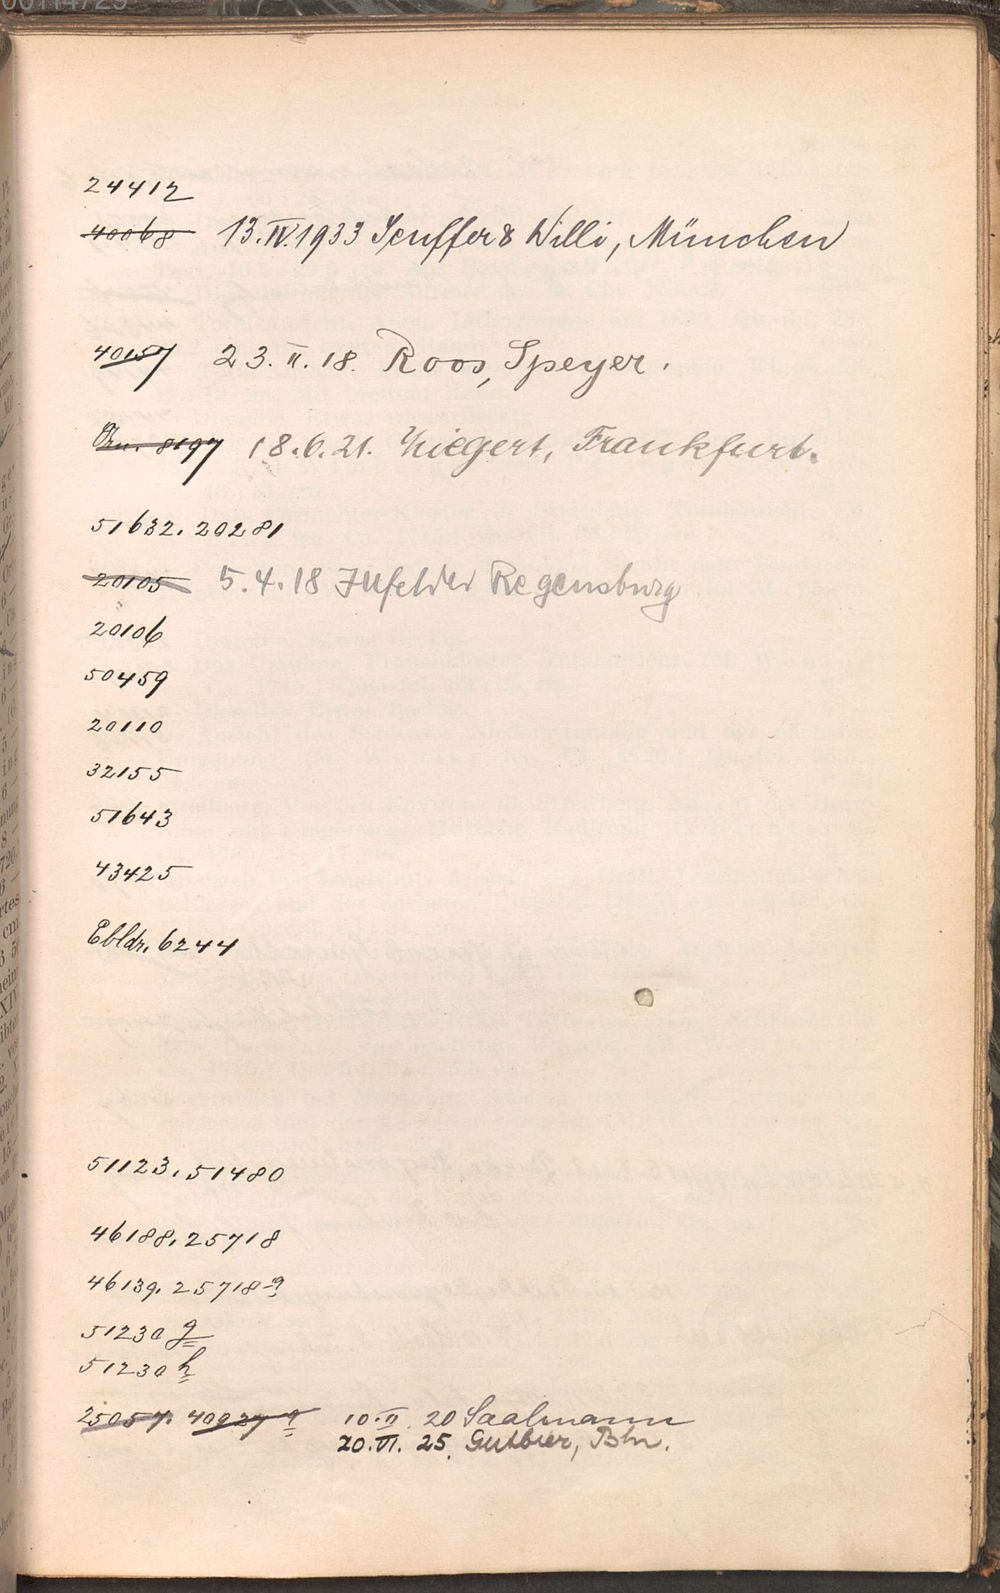 24412
40068 13.IV.1933 Seuffer & Willi, München
40157 23.II.18. Roos, Speyer.
8197 18.6.21. Frankfurt.
51632. 20281
20105 5.4.18 Regensburg
20106
50459
20110
32155
51643
43425
Ebldr. 6244
51123. 51480
46188. 25718
46139. 25718a
51230 g
51230 h
25057. 40927 a 10.II. 20 Saalmann
20.VI. 25. Gutbier, Bln.